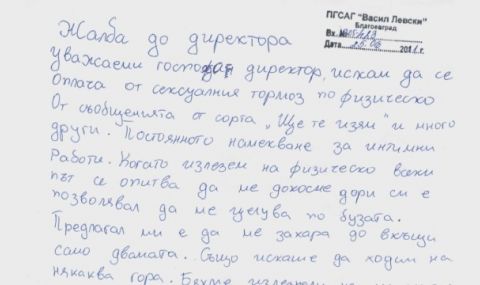 ПГСАГ "Васил Левски"
Благоевград
Вх. №
Дата 201 г.
Жалба до директора
Уважаеми господат директор, искам да се
оплача от сексуалния тормоз по физическо
От съобщенията от сорта „Ще те изям" и много
други. Постоянното намекване за интимни
Работи. Когато излезем на физическо всеки
път се опитва да ме докосне дори си е
позволявал да ме целува по бузата.
Предлагал ми е да ме закара до вкъщи
само двамата. Също искаше да ходим на
някаква гора. Бяхме